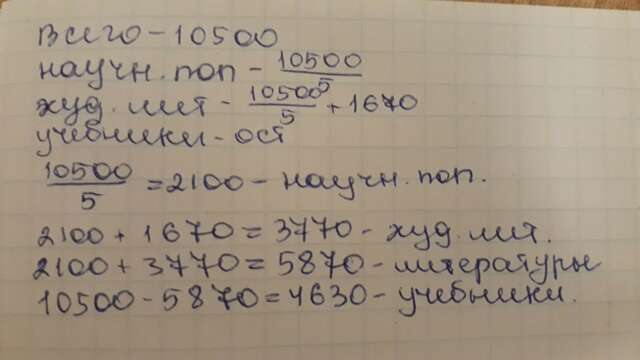 Всего - 10500
научн. поп - 10500/5
худ. лит - 10500/5 + 1670
учебники - ост
10500/5 = 2100 - научн. поп.
2100 + 1670 = 3770 - худ. лит.
2100 + 3770 = 5870 - литературы
10500 - 5870 = 4630 - учебники.